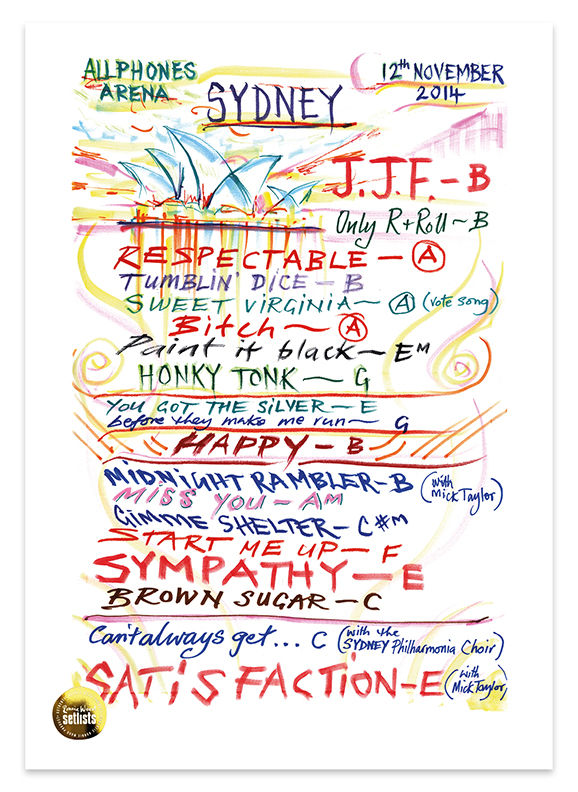 ALLPHONES
ARENA
SYDNEY
12th NOVEMBER
2014
J.J.F. - B
Only R+Roll ~ B
RESPECTABLE - A
TUMBLIN' DICE - B
SWEET VIRGINIA ~ A (vote song)
Bitch ~ A
Paint it black - EM
HONKY TONK - G
YOU GOT THE SILVER - E
before they make me run - G
HAPPY - B
MIDNIGHT RAMBLER - B (with Mick Taylor)
MISS YOU - AM
GIMME SHELTER - C#M
START ME UP - F
SYMPATHY - E
BROWN SUGAR - C
Can't always get... C (with the SYDNEY Philharmonia Choir)
SATISFACTION - E (with Mick Taylor)
Ronnie Wood
setlists